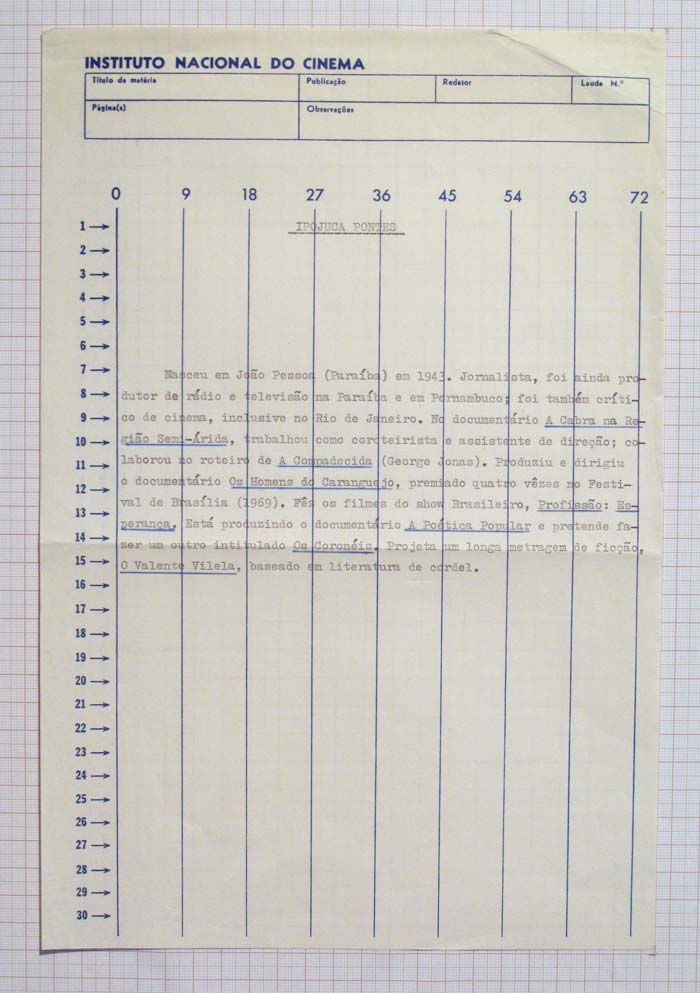 INSTITUTO NACIONAL DO CINEMA
Título da matéria Publicação Redator Lauda N.º
Página(s) Observações
0 9 18 27 36 45 54 63 72
1
IPOJUCA PONTES
2
3
4
5
6
7
Nasceu em João Pessoa (Paraíba) em 1943. Jornalista, foi ainda pro-
8
dutor de rádio e televisão na Paraíba e em Pernambuco; foi também críti-
9
co de cinema, inclusive no Rio de Janeiro. No documentário A Cabra na Re-
10
gião Semi-Árida, trabalhou como coroteirista e assistente de direção; co-
11
laborou no roteiro de A Compadecida (George Jonas). Produziu e dirigiu
12
o documentário Os Homens do Caranguejo, premiado quatro vêzes no Festi-
val de Brasília (1969). Fês os filmes do show Brasileiro, Profissão: Es-
13
perança. Está produzindo o documentário A Poética Popular e pretende fa-
14
zer um outro intitulado Os Coronéis. Projeta um longa metragem de ficção,
15
O Valente Vilela, baseado em literatura de cordel.
16
17
18
19
20
21
22
23
24
25
26
27
28
29
30